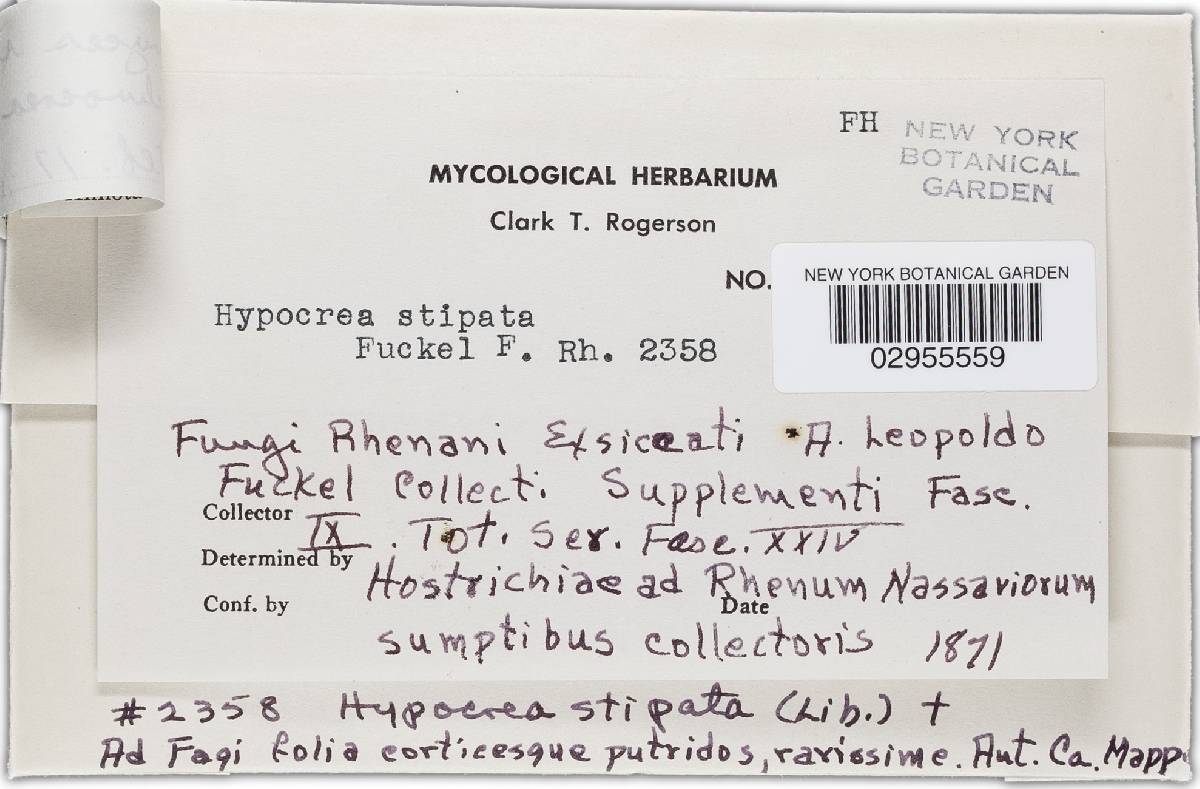 FH
NEW YORK
BOTANICAL
GARDEN
MYCOLOGICAL HERBARIUM
Clark T. Rogerson
NO.
NEW YORK BOTANICAL GARDEN
02955559
Hypocrea stipata
Fuckel F. Rh. 2358
Fungi Rhenani Exsiccati A. Leopoldo
Fuckel Collect. Supplementi Fasc.
Collector IX. Tot. Ser. Fasc. XXIV
Determined by
Hostrichiae ad Rhenum Nassaviorum
Conf. by
Date
sumptibus collectoris 1871
#2358 Hypocrea stipata (Lib.) †
Ad Fagi folia corticesque putridos, rarissime. Aut. Ca. Mapp